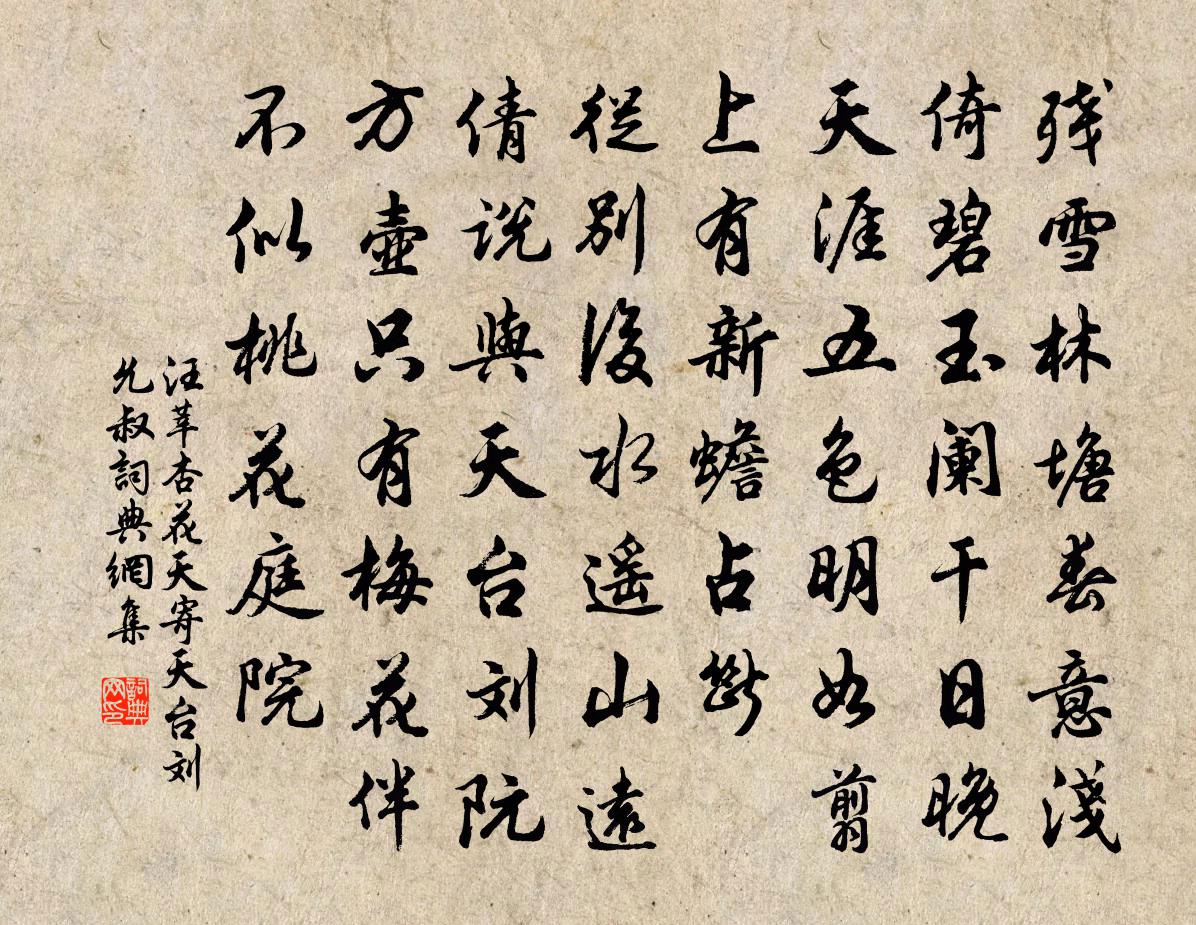 残雪林塘春意淺
倚碧玉阑干日晚
天涯五色明如翦
上有新蟾占斷
從别後水遥山遠
倩説與天台刘阮
方壺只有梅花伴
不似桃花庭院
汪莘杏花天寄天台刘
允叔詞典網集
詞典网印